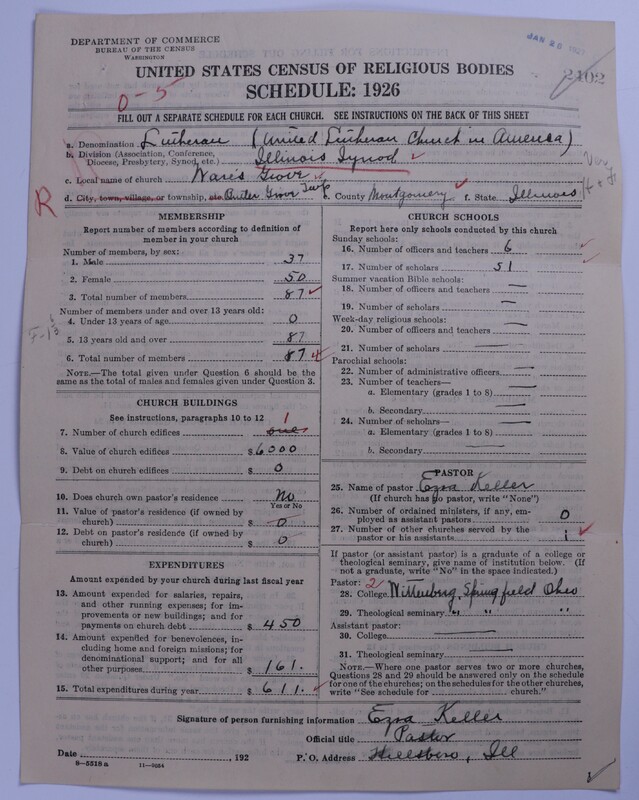 DEPARTMENT OF COMMERCE
BUREAU OF THE CENSUS
WASHINGTON
JAN 26 1927
2402
UNITED STATES CENSUS OF RELIGIOUS BODIES
SCHEDULE: 1926
0-5
FILL OUT A SEPARATE SCHEDULE FOR EACH CHURCH. SEE INSTRUCTIONS ON THE BACK OF THIS SHEET
a. Denomination Lutheran (United Lutheran Church in America)
b. Division (Association, Conference, Diocese, Presbytery, Synod, etc.) Illinois Synod
c. Local name of church Ware's Grove
d. City, town, village, or township, etc. Butler Grove Twp e. County Montgomery f. State Illinois
R
MEMBERSHIP
Report number of members according to definition of
member in your church
Number of members, by sex:
1. Male 37
2. Female 50
3. Total number of members 87
Number of members under and over 13 years old:
4. Under 13 years of age 0
5. 13 years old and over 87
6. Total number of members 87
NOTE.—The total given under Question 6 should be
the same as the total of males and females given under Question 3.
CHURCH BUILDINGS
See instructions, paragraphs 10 to 12
7. Number of church edifices one 1
8. Value of church edifices $6000
9. Debt on church edifices $ 0
10. Does church own pastor's residence No
Yes or No
11. Value of pastor's residence (if owned by
church) $ 0
12. Debt on pastor's residence (if owned by
church) $ 0
EXPENDITURES
Amount expended by your church during last fiscal year
13. Amount expended for salaries, repairs,
and other running expenses; for im-
provements or new buildings; and for
payments on church debt $ 450
14. Amount expended for benevolences, in-
cluding home and foreign missions; for
denominational support; and for all
other purposes $ 161.
15. Total expenditures during year $ 611.
CHURCH SCHOOLS
Report here only schools conducted by this church
Sunday schools:
16. Number of officers and teachers 6
17. Number of scholars 51
Summer vacation Bible schools:
18. Number of officers and teachers —
19. Number of scholars —
Week-day religious schools:
20. Number of officers and teachers —
21. Number of scholars —
Parochial schools:
22. Number of administrative officers —
23. Number of teachers—
a. Elementary (grades 1 to 8) —
b. Secondary —
24. Number of scholars—
a. Elementary (grades 1 to 8) —
b. Secondary —
PASTOR
25. Name of pastor Ezra Keller
(If church has no pastor, write "None")
26. Number of ordained ministers, if any, em-
ployed as assistant pastors 0
27. Number of other churches served by the
pastor or his assistants 1
If pastor (or assistant pastor) is a graduate of a college or
theological seminary, give name of institution below. (If
not a graduate, write "No" in the space indicated.)
Pastor: 2
28. College Wittenberg, Springfield Ohio
29. Theological seminary " " "
Assistant pastor:
30. College —
31. Theological seminary —
NOTE.—Where one pastor serves two or more churches,
Questions 28 and 29 should be answered only on the schedule
for one of the churches; on the schedules for the other churches,
write "See schedule for ____ church."
Signature of person furnishing information Ezra Keller
Official title Pastor
Date ____, 192 P. O. Address Hillsboro, Ill
8-5518 a 11-9264